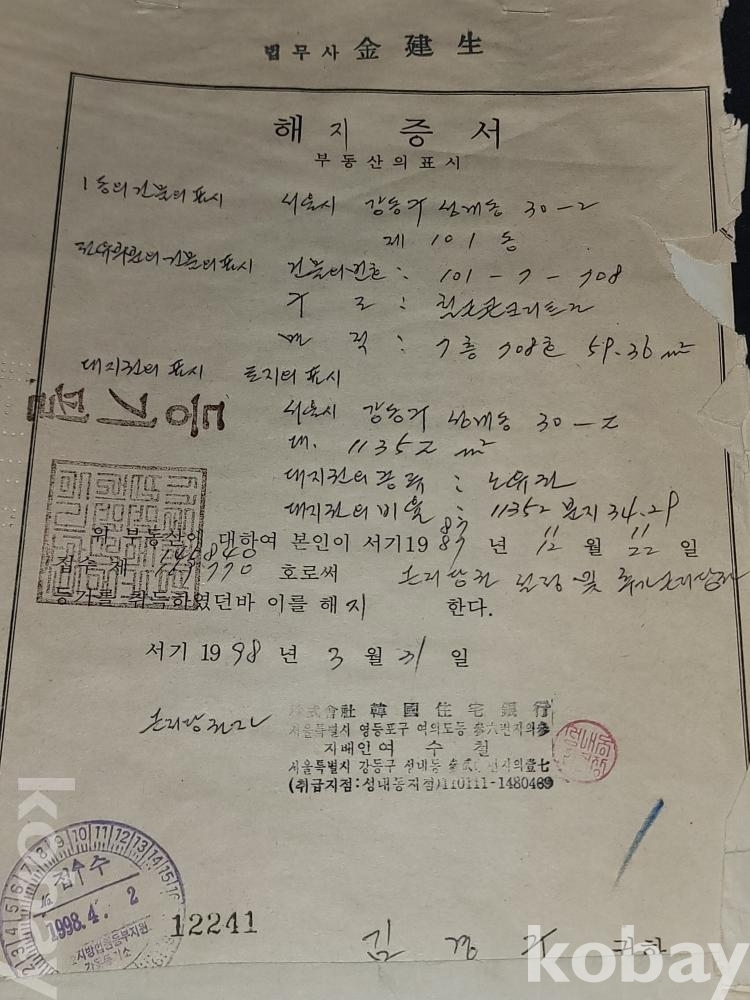 법무사 金建生
해지증서
부동산의표시
1동의 건물의 표시 서울시 강동구 성내동 30-2
제 101 동
전유부분의 건물의 표시 건물의번호 : 101-7-708
구 조 : 철근콘크리트조
면 적 : 7층 708호 59.36㎡
대지권의 표시 토지의 표시
등기필
서울시 강동구 성내동 30-2
대. 11352㎡
대지권의 종류 : 소유권
대지권의 비율 : 11352 분지 34.29
위 부동산에 대하여 본인이 서기 19 년 월 일
접수 제 호로써 근저당권 설정 및
등기를 취득하였던바 이를 해지 한다.
서기 1998년 3월 31일
근저당권자 株式會社 韓國住宅銀行
서울특별시 영등포구 여의도동 參六번지의參
지배인 여 수 철
서울특별시 강동구 성내동 의壹七
(취급지점:성내동지점)110111-1480469
접수
No.
1998.4. 2
12241
김 경 귀하
kobay
kobay